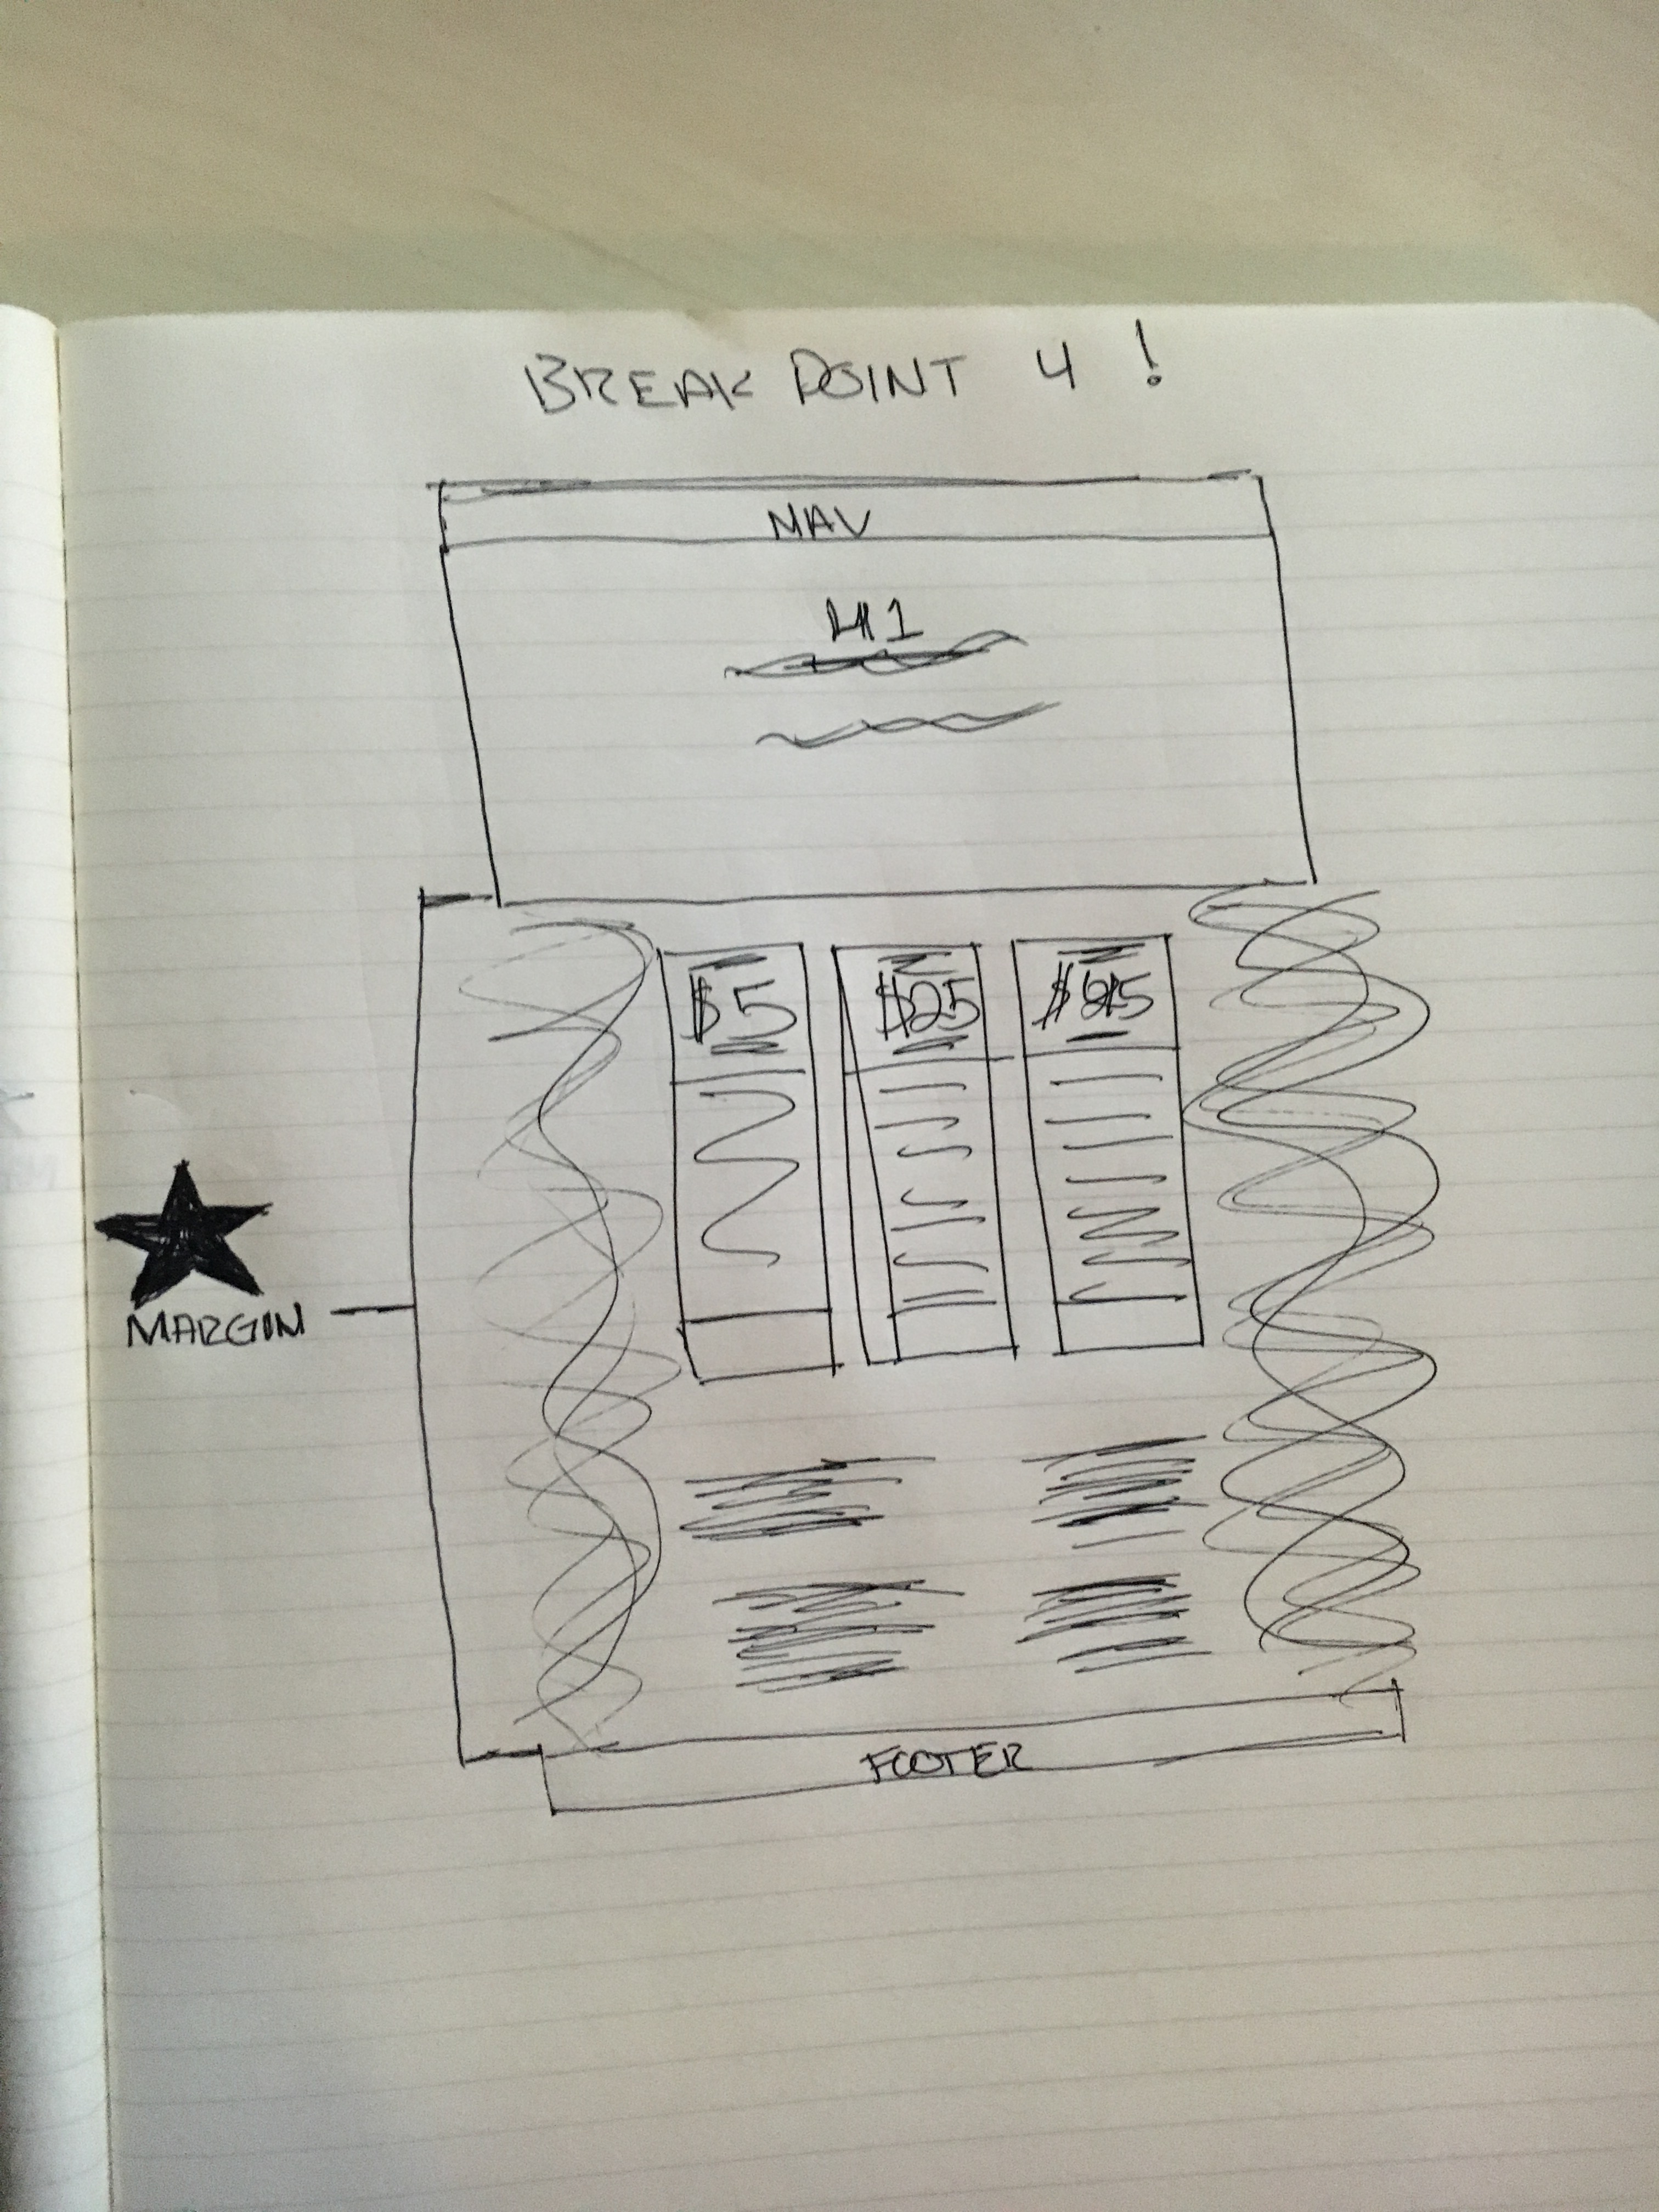 BREAK POINT 4 !
NAV
H1
$5
$25
MARGIN
FOOTER